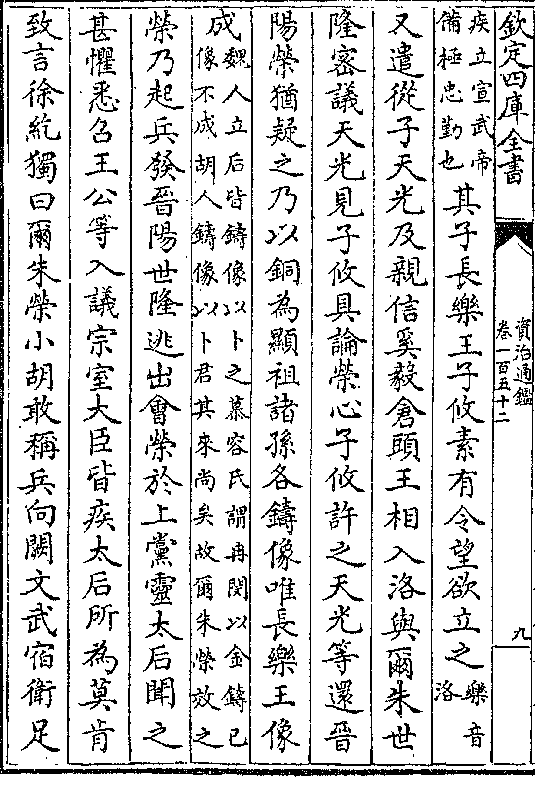 欽定四庫全書
資治通鑑
卷一百五十二
九
疾立宣武帝
備極忠勤也
其子長樂王子攸素有令望欲立之
樂音
洛
又遣從子天光及親信奚毅倉頭王相入洛與爾朱世
隆密議天光見子攸具論榮心子攸許之天光等還晉
陽榮猶疑之乃以銅為顯祖諸孫各鑄像唯長樂王像
成
魏人立后皆鑄像以卜之慕容氏謂冉閔以金鑄已
像不成胡人鑄像以卜君其來尚矣故爾朱榮效之
榮乃起兵發晉陽世隆逃出會榮於上黨靈太后聞之
甚懼悉召王公等入議宗室大臣皆疾太后所為莫肯
致言徐紇獨曰爾朱榮小胡敢稱兵向闕文武宿衛足